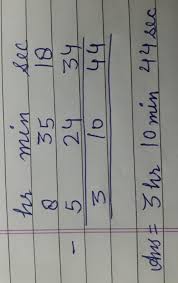 hr min sec
8 35 18
- 5 24 34
3 10 44
Ans = 3 hr 10 min 44 sec